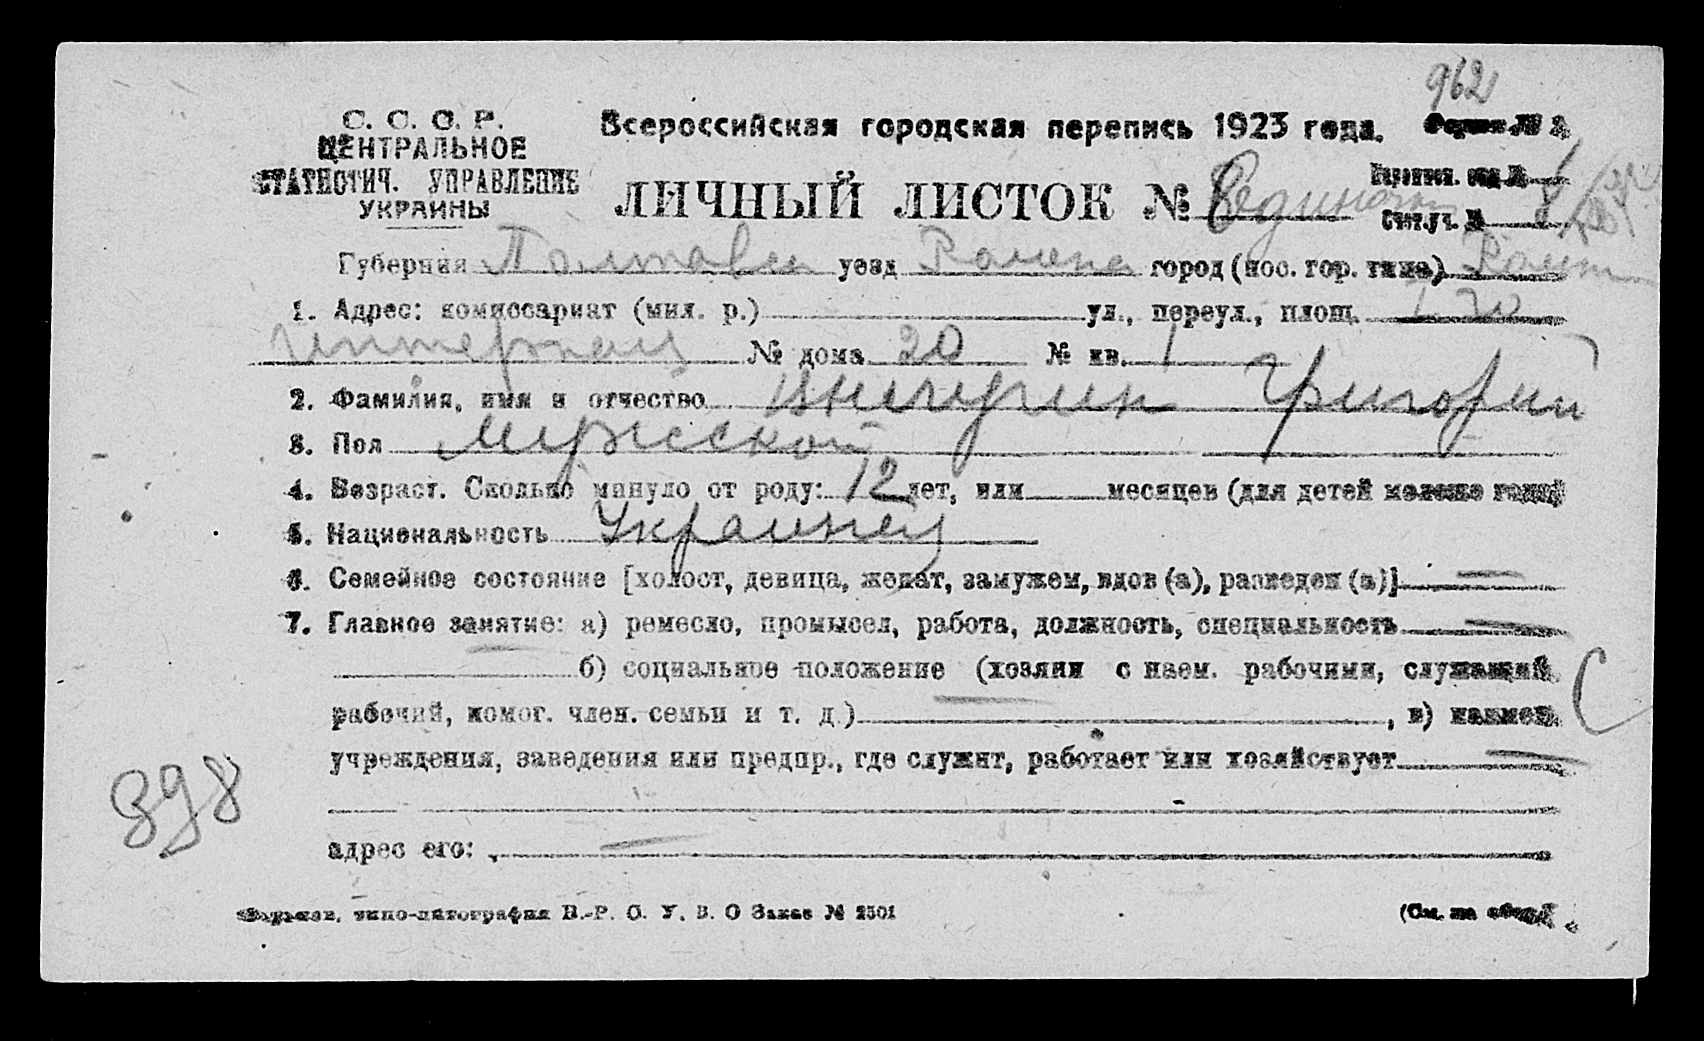 962
С. С. С. Р.
ЦЕНТРАЛЬНОЕ
СТАТИСТИЧ. УПРАВЛЕНИЕ
УКРАИНЫ
Всероссийская городская перепись 1923 года. Форма № 2
ЛИЧНЫЙ ЛИСТОК № 8
Счет.уч. №
Губерния Полтавск уезд Роменск город (пос. гор. типа)
1. Адрес: комиссариат (мил. р.) ул., переул., площ.
Интернац № дома 20 № кв. 1
2. Фамилия, имя и отчество Григорий
3. Пол Мужской
4. Возраст. Сколько минуло от роду: 12 лет, или месяцев (для детей моложе года)
5. Национальность Украинец
6. Семейное состояние [холост, девица, женат, замужем, вдов (а), разведен (а)]
7. Главное занятие: а) ремесло, промысел, работа, должность, специальность
б) социальное положение (хозяин с наем. рабочими, служащий
рабочий, помог. член. семьи и т. д.) , в) наимен.
учреждения, заведения или предпр., где служит, работает или хозяйствует
898
адрес его:
Харьков. типо-литография В.-Р. О. У. В. О Заказ № 2501
(См. на обор.)